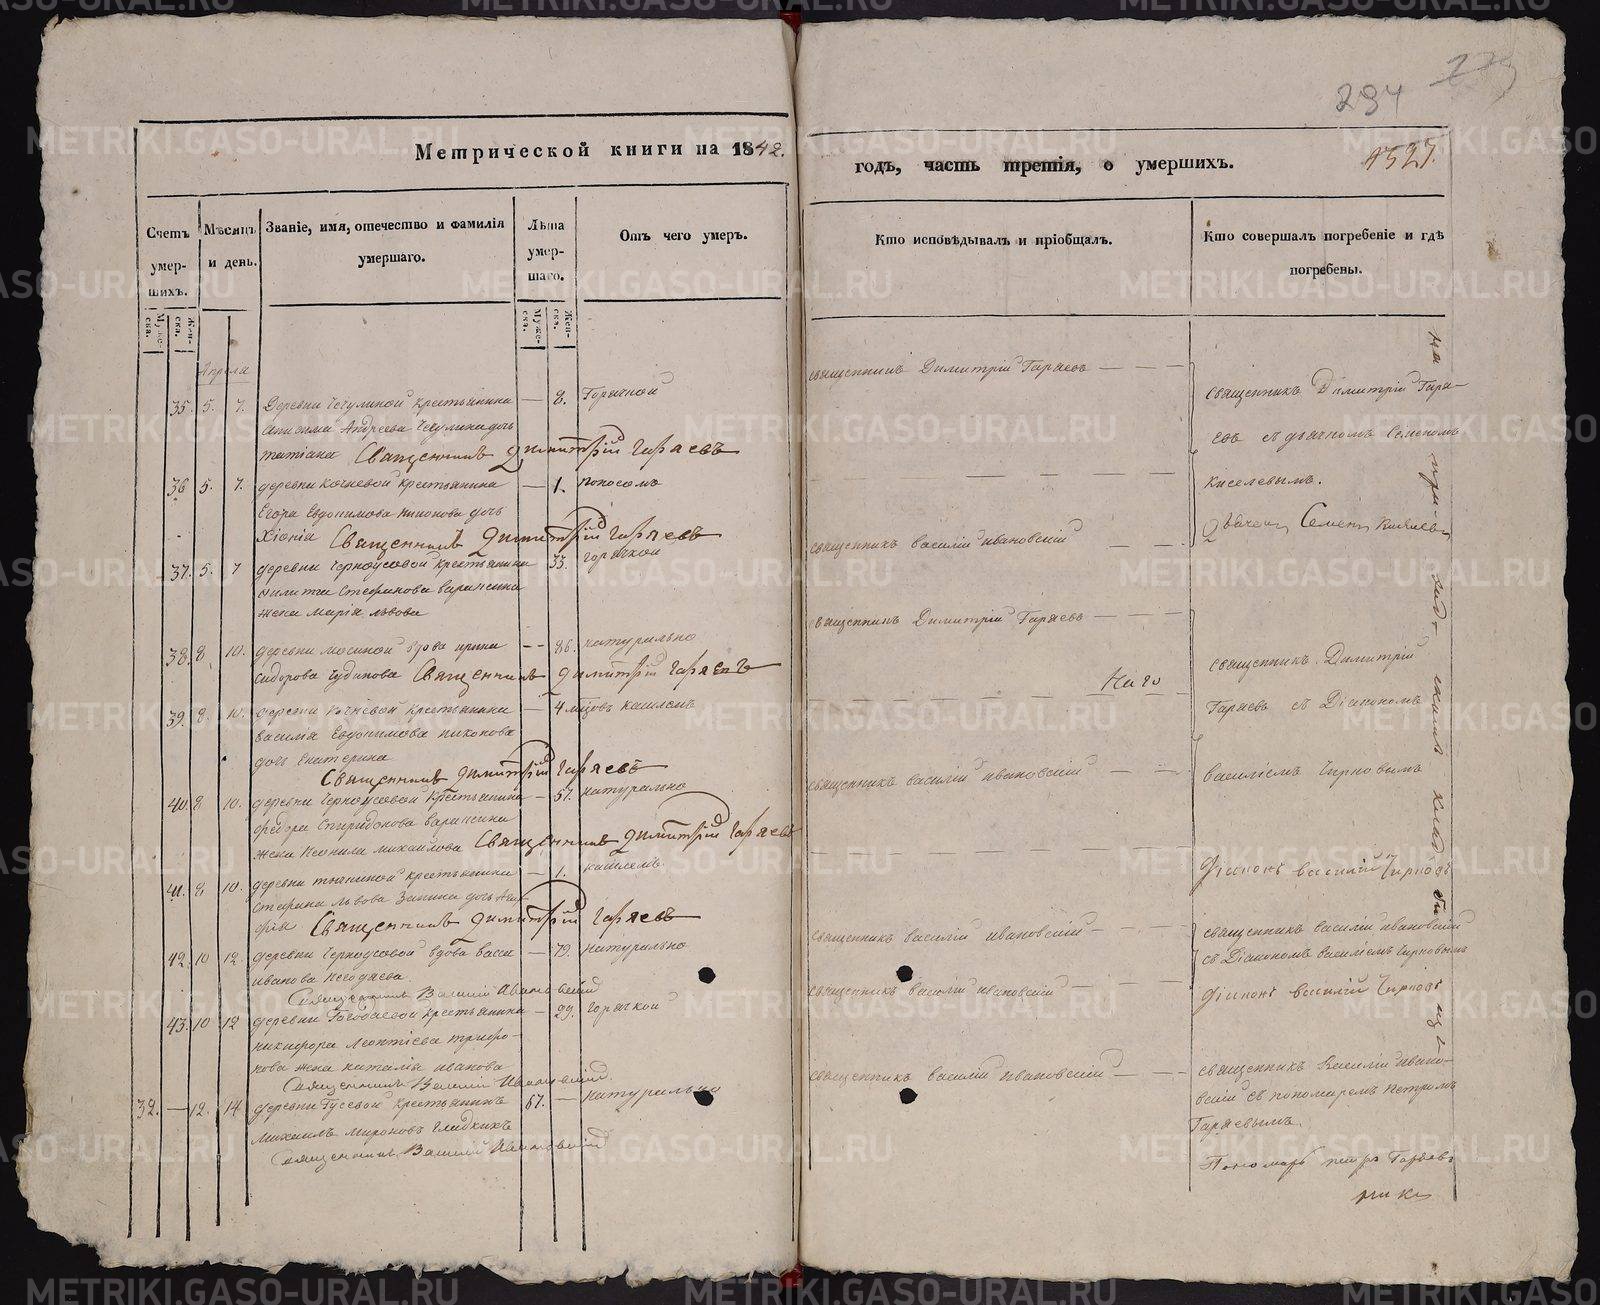 294
Метрической книги на 1842.
годъ, часть третія, о умершихъ.
1327.
Счетъ умер-шихъ.
Мѣсяцъ и день.
Званіе, имя, отечество и фамилія умершаго.
Лѣта умер-шаго.
Отъ чего умеръ.
Кто исповѣдывалъ и пріобщалъ.
Кто совершалъ погребеніе и гдѣ погребены.
Муже-ска.
Жен-ска.
Муже-ска.
Жен-ска.
Апреля
35. 5. 7. Деревни Чечулиной крестьянина — 8. Горячкой
Андреева Чечулина дочь
татіана Священникъ Димитрій Гаряевъ
36 5. 7. деревни Кочневой крестьянина — 1. поносомъ
Егора Евдокимова Никонова дочь
Хіонія Священникъ Димитрій Гаряевъ
37. 5. 7 деревни Черноусовой крестьянина 33. горячкой
Стефанова Варак
жена Марія Львова
38. 8. 10. деревни Мосиной вдова Ирина — 86. натурально
Сидорова Чудинова Священникъ Димитрій Гаряевъ
39. 8. 10. деревни Кочневой крестьянина — 4 мѣсцовъ кашлемъ
Василія Евдокимова Никонова
дочь Екатерина
Священникъ Димитрій Гаряевъ
40. 8 10. деревни Черноусовой крестьянина — 57. натурально
Федора Спиридонова
жена Неонила Михайлова Священникъ Димитрій Гаряевъ
41. 8 10. деревни крестьянина — 1. кашлемъ.
Стефана Львова дочь Ага-
фія Священникъ Димитрій Гаряевъ
42. 10 12. деревни Черноусовой вдова Васса — 79. натурально
Иванова
Священникъ Василій Ивановскій
43. 10 12 деревни крестьянина — 29. горячкой
Никифора Леонтіева Трифо-
нова жена Наталія Иванова
Священникъ Василій Ивановскій
32. — 12. 14 деревни Гусевой крестьянинъ 67. — натурально
Михаилъ Мироновъ Гладкихъ
Священникъ Василій Ивановскій
священникъ Димитрій Гаряевъ
священникъ Василій Ивановскій
священникъ Димитрій Гаряевъ
священникъ Василій Ивановскій
священникъ Василій Ивановскій
священникъ Василій Ивановскій
священникъ Василій Ивановскій
священникъ Димитрій Гаря-
евъ съ дьячкомъ Семеномъ
Киселевымъ.
Дьячекъ Семенъ Киселевъ
священникъ Димитрій
Гаряевъ съ Діакономъ
Василіемъ Чирковымъ
Діаконъ Василій Чирковъ
священникъ Василій Ивановскій
съ Діакономъ Василіемъ Чирковымъ
Діаконъ Василій Чирковъ
священникъ Василій Ивано-
вскій съ пономаремъ Петромъ
Гаряевымъ.
Пономарь Петръ Гаряевъ
на при ход скомъ клад би
METRIKI.GASO-URAL.RU